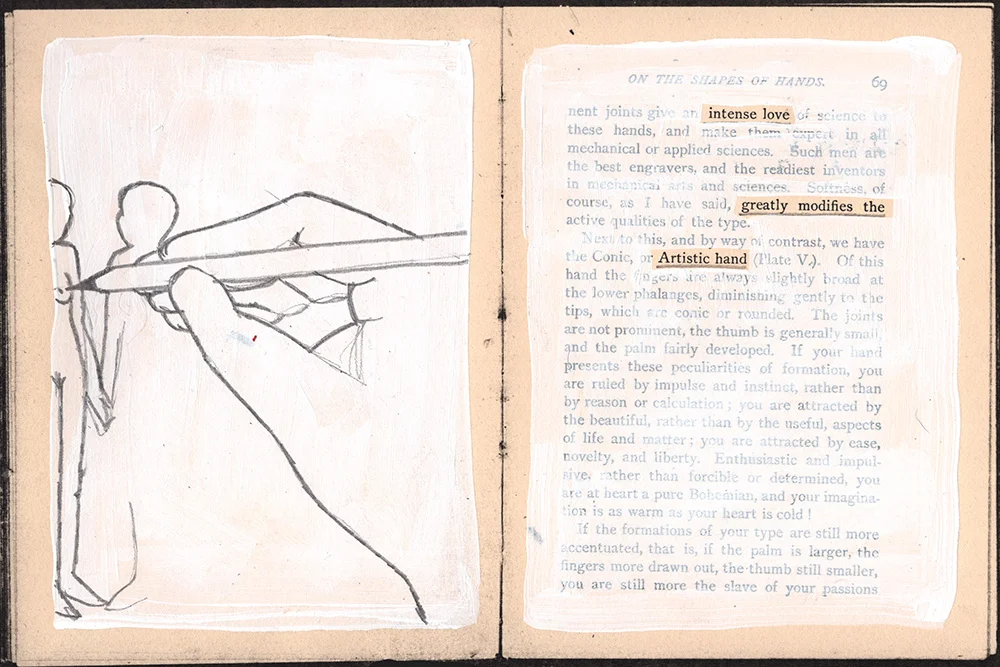 ON THE SHAPES OF HANDS. 69
nent joints give an intense love of science to
these hands, and make them expert in all
mechanical or applied sciences. Such men are
the best engravers, and the readiest inventors
in mechanical arts and sciences. Softness, of
course, as I have said, greatly modifies the
active qualities of the type.
Next to this, and by way of contrast, we have
the Conic, or Artistic hand (Plate V.). Of this
hand the fingers are always slightly broad at
the lower phalanges, diminishing gently to the
tips, which are conic or rounded. The joints
are not prominent, the thumb is generally small,
and the palm fairly developed. If your hand
presents these peculiarities of formation, you
are ruled by impulse and instinct, rather than
by reason or calculation; you are attracted by
the beautiful, rather than by the useful, aspects
of life and matter; you are attracted by ease,
novelty, and liberty. Enthusiastic and impul-
sive, rather than forcible or determined, you
are at heart a pure Bohemian, and your imagina-
tion is as warm as your heart is cold!
If the formations of your type are still more
accentuated, that is, if the palm is larger, the
fingers more drawn out, the thumb still smaller,
you are still more the slave of your passions